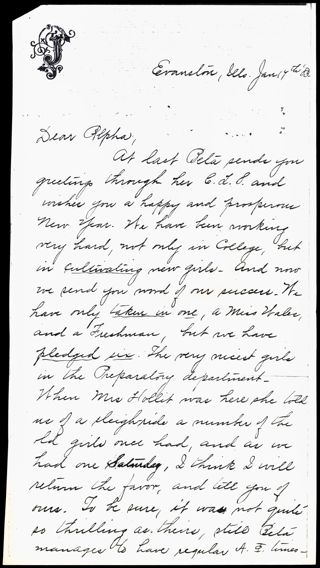 Evanston, Ills. Jan. 17th
Dear Alpha,
At last Beta sends you
greetings through her C. L. P. and
wishes you a happy and prosperous
New Year. We have been working
very hard, not only in College, but
in cultivating new girls. And now
we send you word of our success. We
have only taken in one, a Miss Wales,
and a Freshman, but we have
pledged six. The very nicest girls
in the Preparatory department—
When Mrs Hollit was here she told
us of a sleighride a number of the
old girls once had, and as we
had one Saturday, I think I will
return the favor, and tell you of
ours. To be sure, it was not quite
so thrilling as theirs, still Beta
manages to have regular A. F. times—